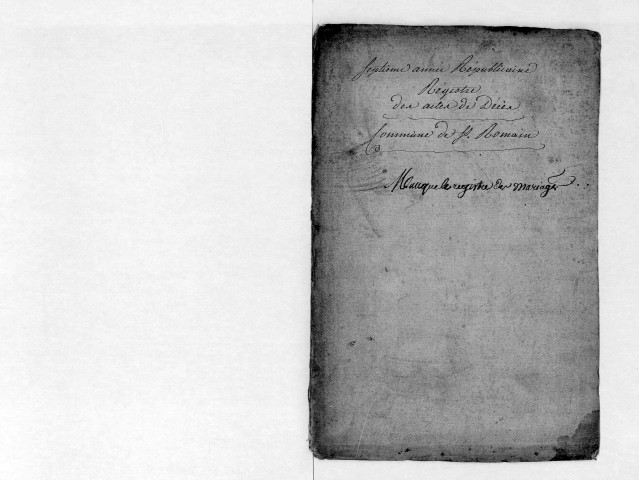 Septieme année Républicaine
Régistre
des actes de Décès
Commune de St. Romain
Manque le registre des mariages